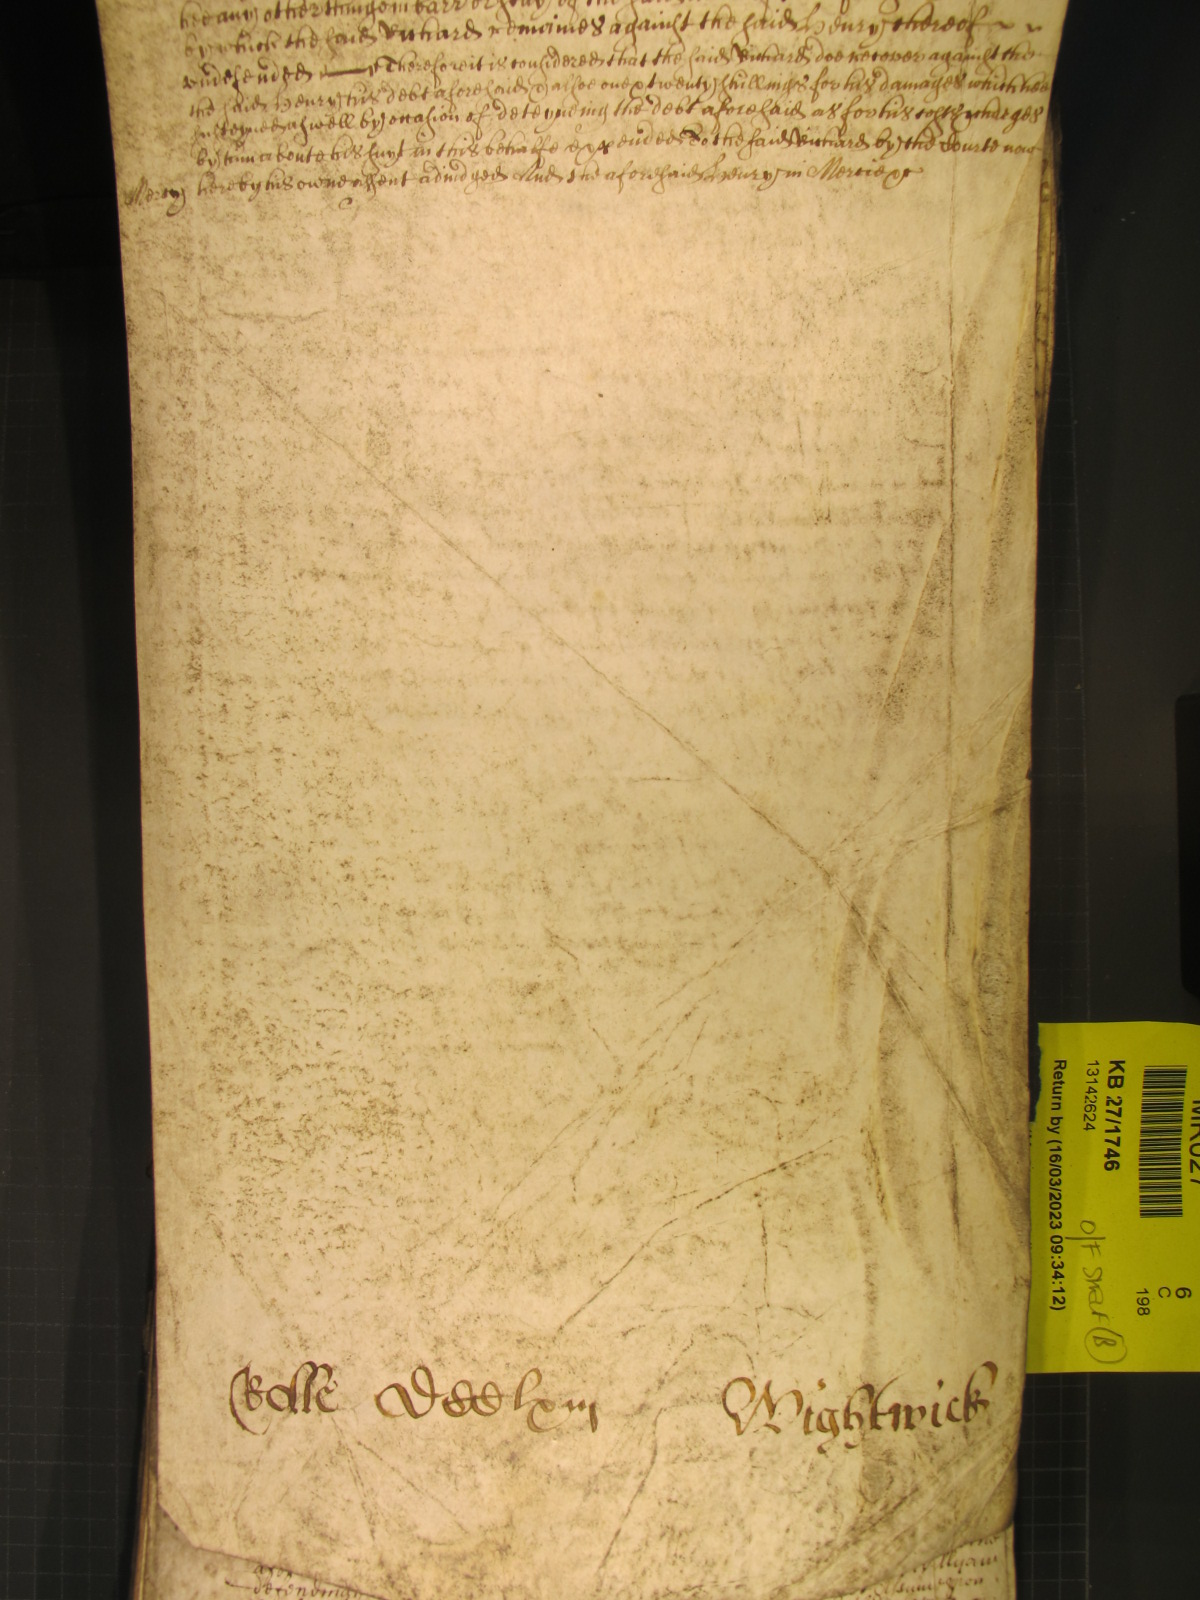 hee any other thing in barr or stay of the
by which the said Richard remaines against the said Henry thereof
undefended Therefore it is considered that the said Richard doe recover against the
the said Henry his debt aforesaid & alsoe one & twenty shillings for his damages which hee
susteyned aswell by occasion of deteyning the debt aforesaid as for his costs & charges
by him about his suyt in this behalfe expended to the said Richard by the Courte now
Mercy here by his owne assent adiudged And the aforesaid Henry in Mercie &c
Rolle DCClxiii Wightwick
KB 27/1746
13142624
Return by (16/03/2023 09:34:12)
6
C
198
defendman